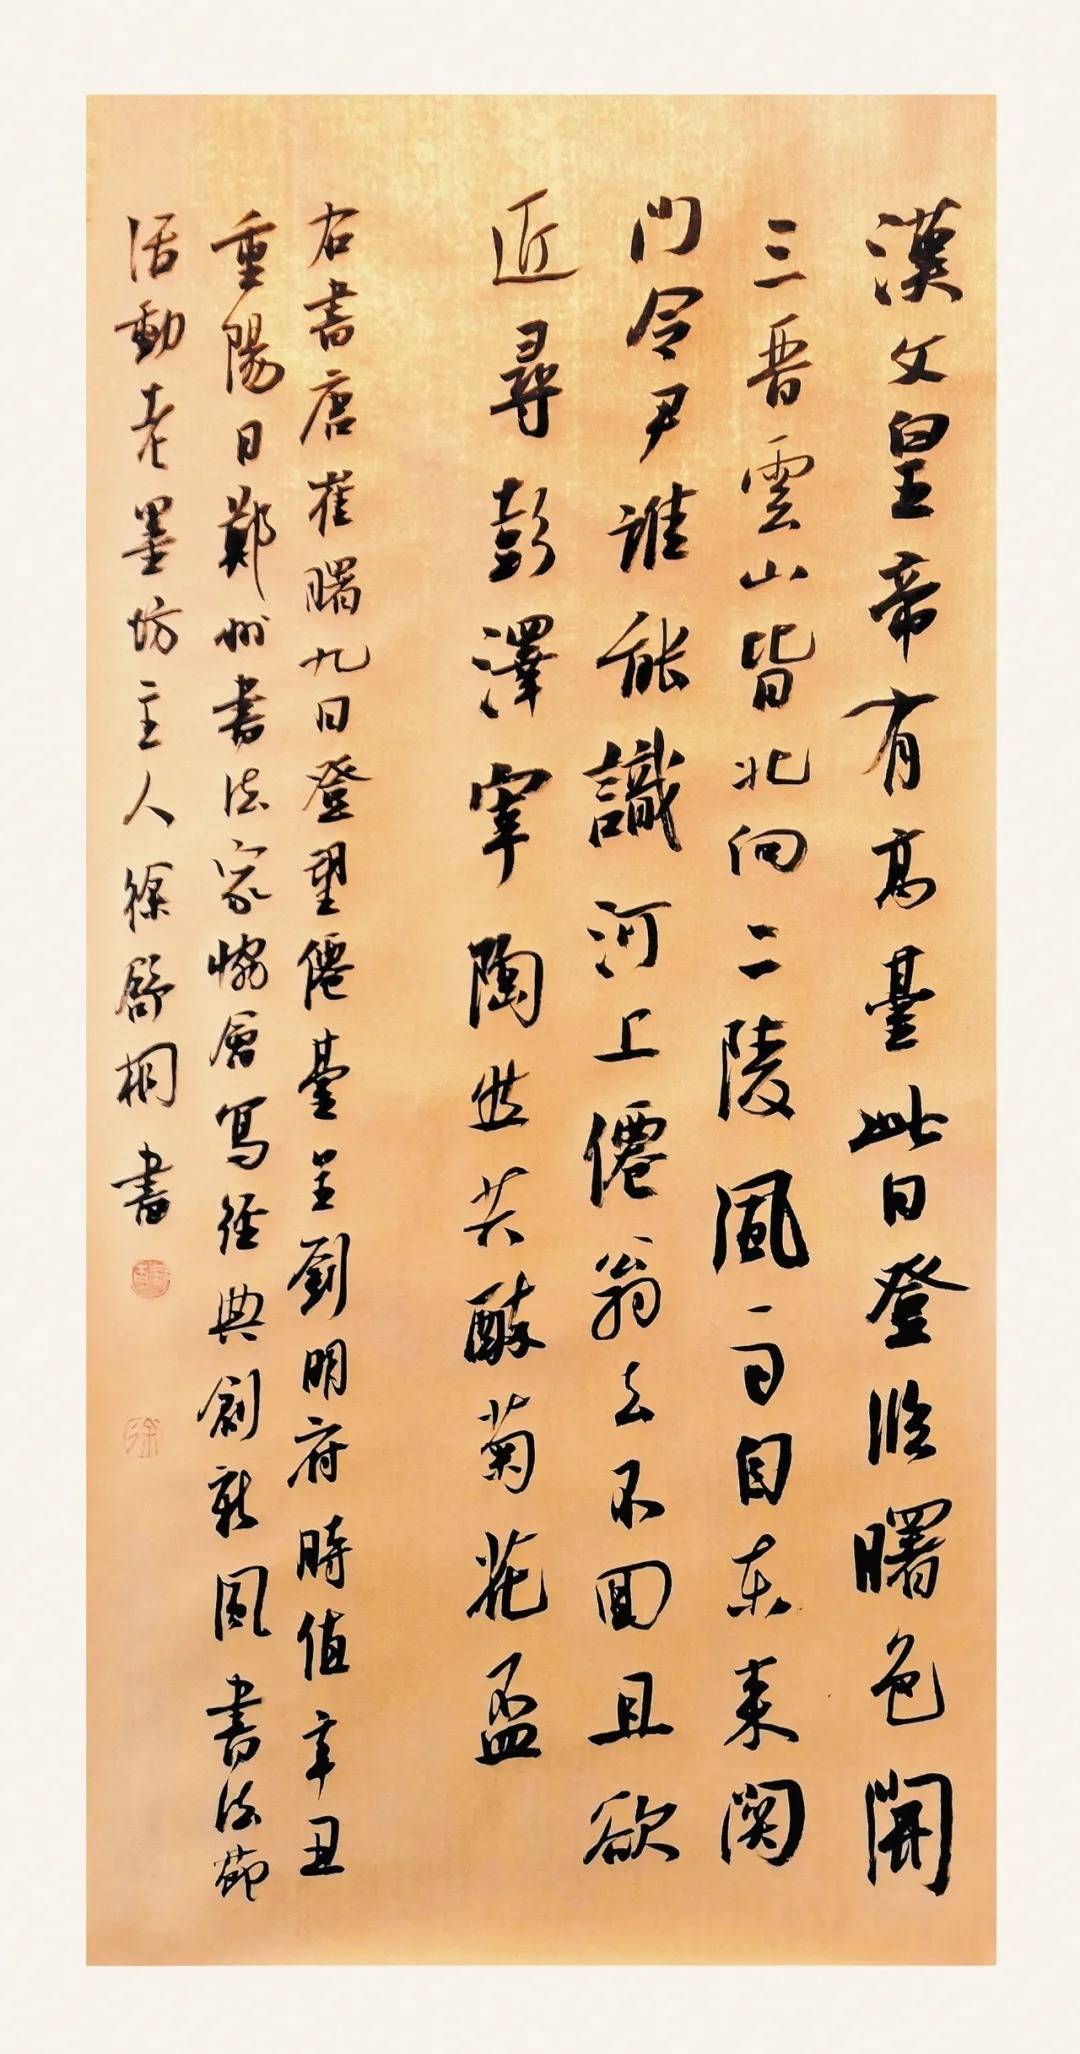 漢文皇帝有高臺此日登臨曙色開
三晋雲山皆北向二陵風雨自東来関
門令尹誰能識河上僊翁去不回且欲
近尋彭澤宰陶然共醉菊花盃
右書唐崔曙九日登望僊臺呈劉明府時值辛丑
重陽日鄭州書法家協會寫經典創新風書法節
活動老墨坊主人徐舒桐書
徐